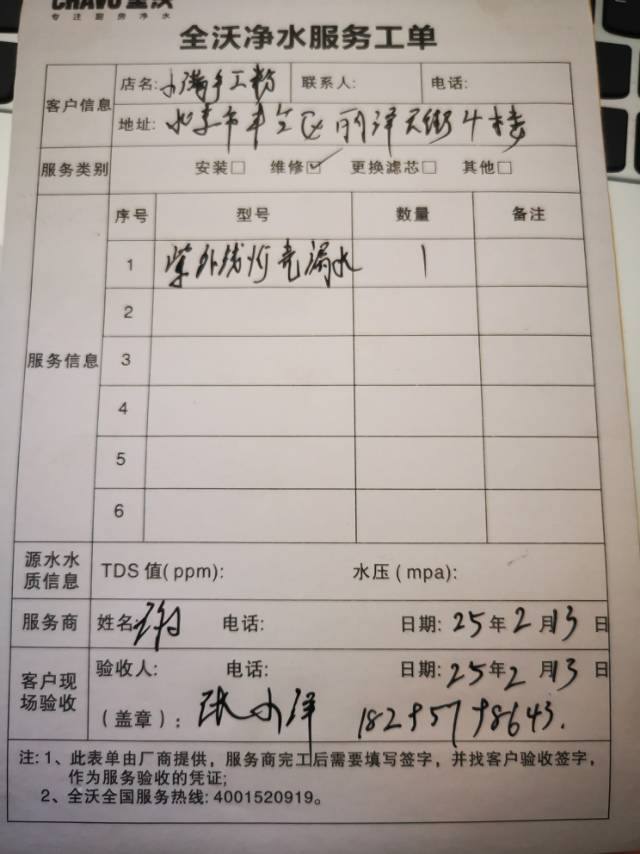 CHAVO 全沃
专注厨房净水
全沃净水服务工单
客户信息 店名: 小满手工粉 联系人: 电话:
地址: 北京市丰台区丽泽天街4楼
服务类别 安装□ 维修☑ 更换滤芯□ 其他□
服务信息 序号 型号 数量 备注
1 紫外线灯壳漏水 1
2
3
4
5
6
源水水质信息 TDS 值(ppm): 水压(mpa):
服务商 姓名: 电话: 日期: 25年2月13日
客户现场验收 验收人: 电话: 日期: 25年2月13日
(盖章): 张小洋 18295798643.
注: 1、此表单由厂商提供，服务商完工后需要填写签字，并找客户验收签字，
作为服务验收的凭证;
2、全沃全国服务热线: 4001520919。